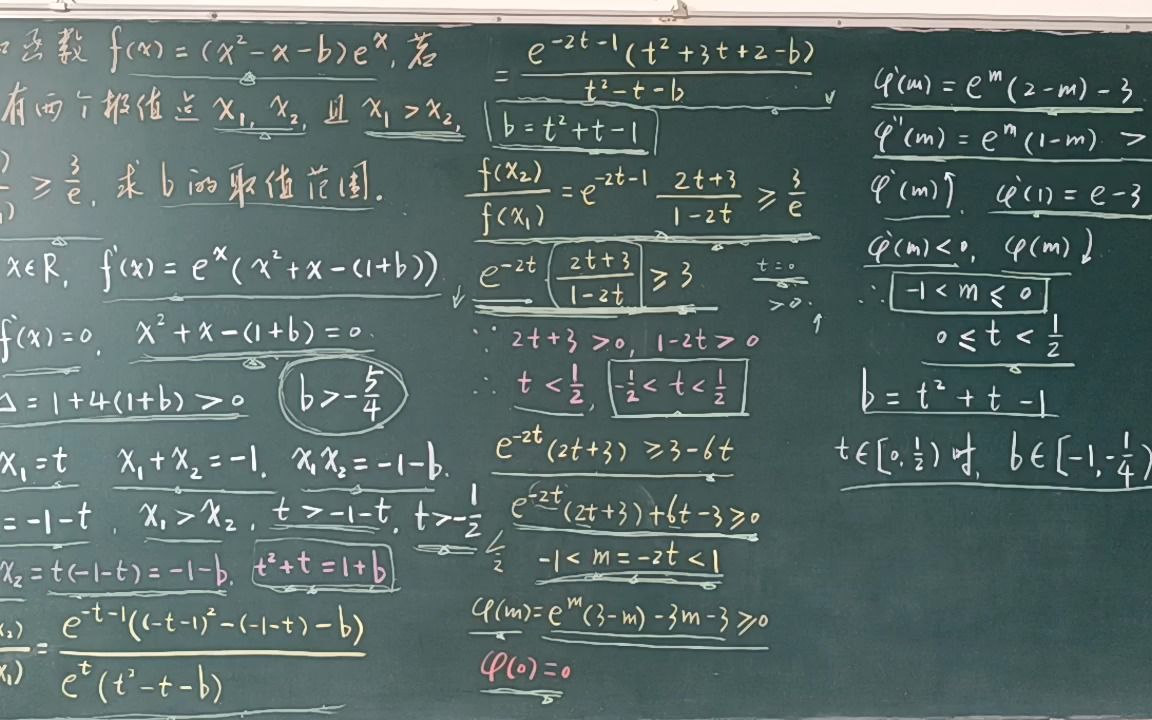 函数 f(x) = (x²-x-b)eˣ, 若
有两个极值点 x₁, x₂, 且 x₁ > x₂,
≥ 3/e, 求 b 的取值范围.
x∈R, f'(x) = eˣ(x²+x-(1+b))
f'(x)=0, x²+x-(1+b)=0.
Δ = 1+4(1+b) > 0 b > -5/4
x₁ = t x₁+x₂ = -1, x₁x₂ = -1-b.
= -1-t, x₁ > x₂, t > -1-t, t > -1/2
x₂ = t(-1-t) = -1-b, t²+t = 1+b
= e^(-t-1)((-t-1)²-(-1-t)-b) / e^t(t²-t-b)
= e^(-2t-1)(t²+3t+2-b) / t²-t-b
b = t²+t-1
f(x₂)/f(x₁) = e^(-2t-1) (2t+3)/(1-2t) ≥ 3/e
e^(-2t) (2t+3)/(1-2t) ≥ 3 t=0
>0.
∵ 2t+3 > 0, 1-2t > 0
∴ t < 1/2, -1/2 < t < 1/2
e^(-2t)(2t+3) ≥ 3-6t
e^(-2t)(2t+3)+6t-3 ≥ 0
-1 < m = -2t < 1
φ(m) = e^m(3-m)-3m-3 ≥ 0
φ(0) = 0
φ'(m) = e^m(2-m)-3
φ''(m) = e^m(1-m) >
φ'(m)↑, φ'(1) = e-3
φ'(m) < 0, φ(m)↓
∴ -1 < m ≤ 0
0 ≤ t < 1/2
b = t²+t-1
t∈[0, 1/2) 时, b∈[-1, -1/4)